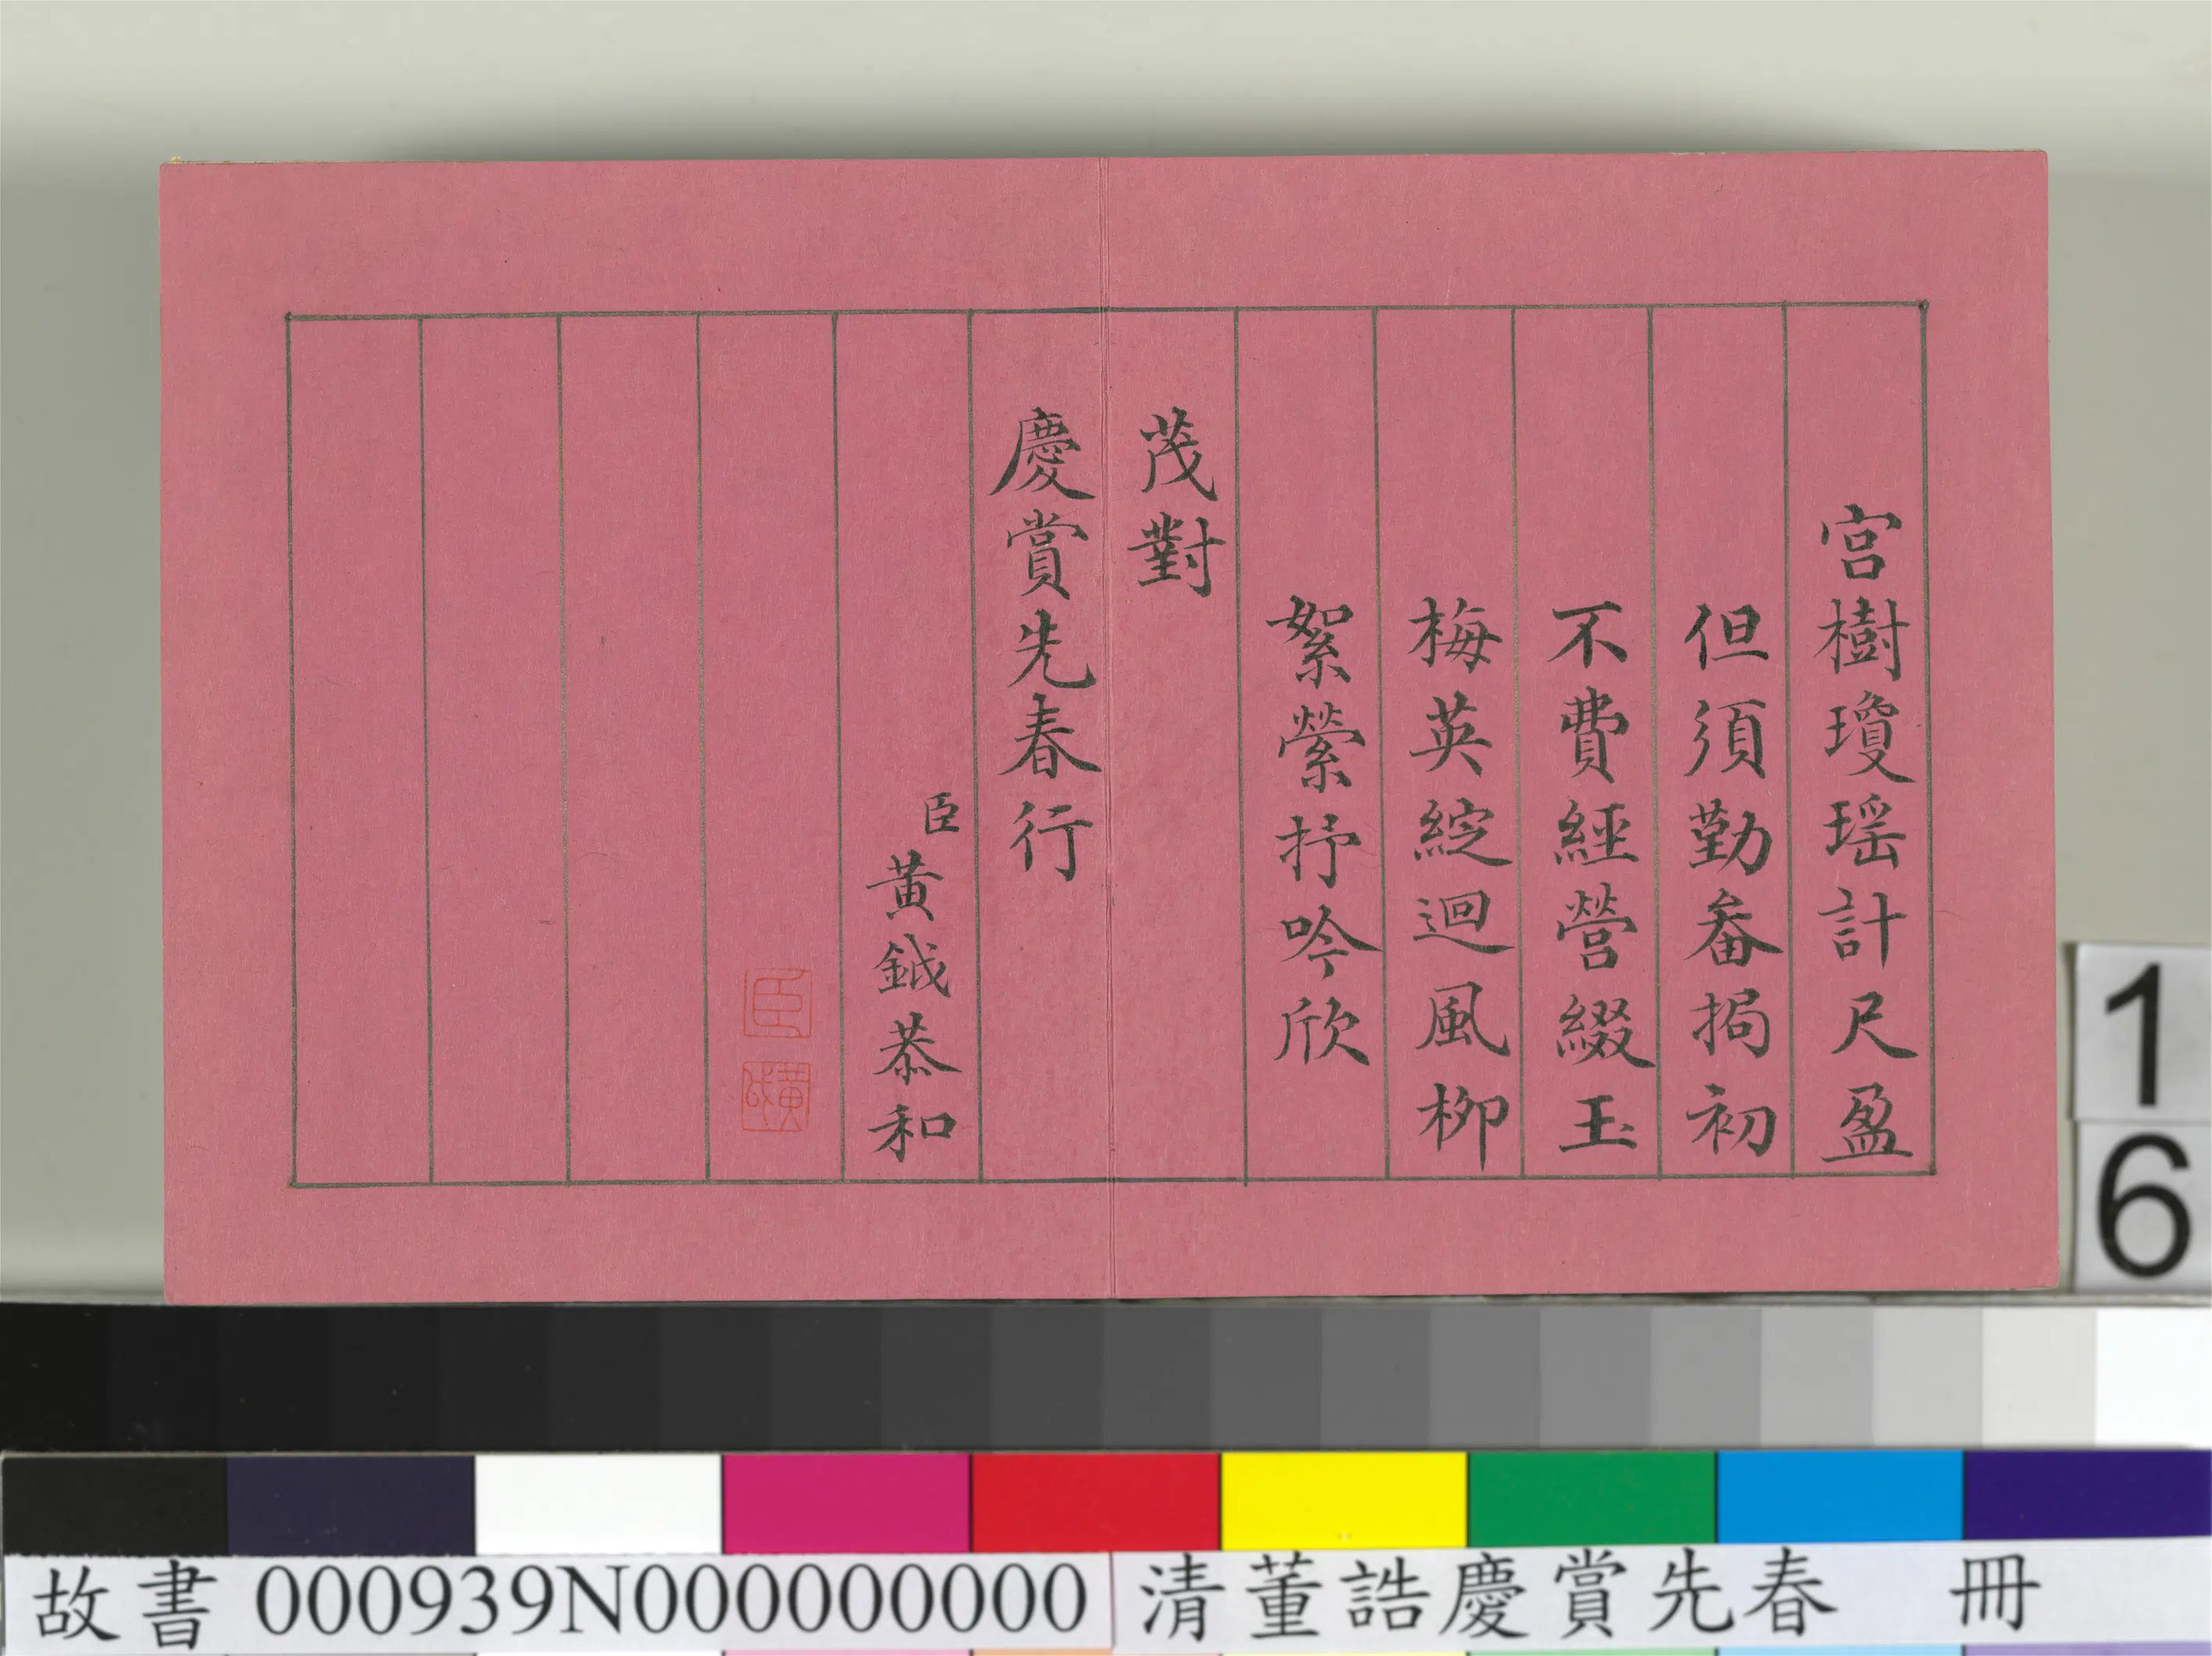 宮樹瓊瑶計尺盈
但須勤畚挶初
不費經營綴玉
梅英綻迴風柳
絮縈抒吟欣
茂對
慶賞先春行
臣
黃鉞恭和
臣
黃鉞
16
故書 000939N000000000
清董誥慶賞先春 冊